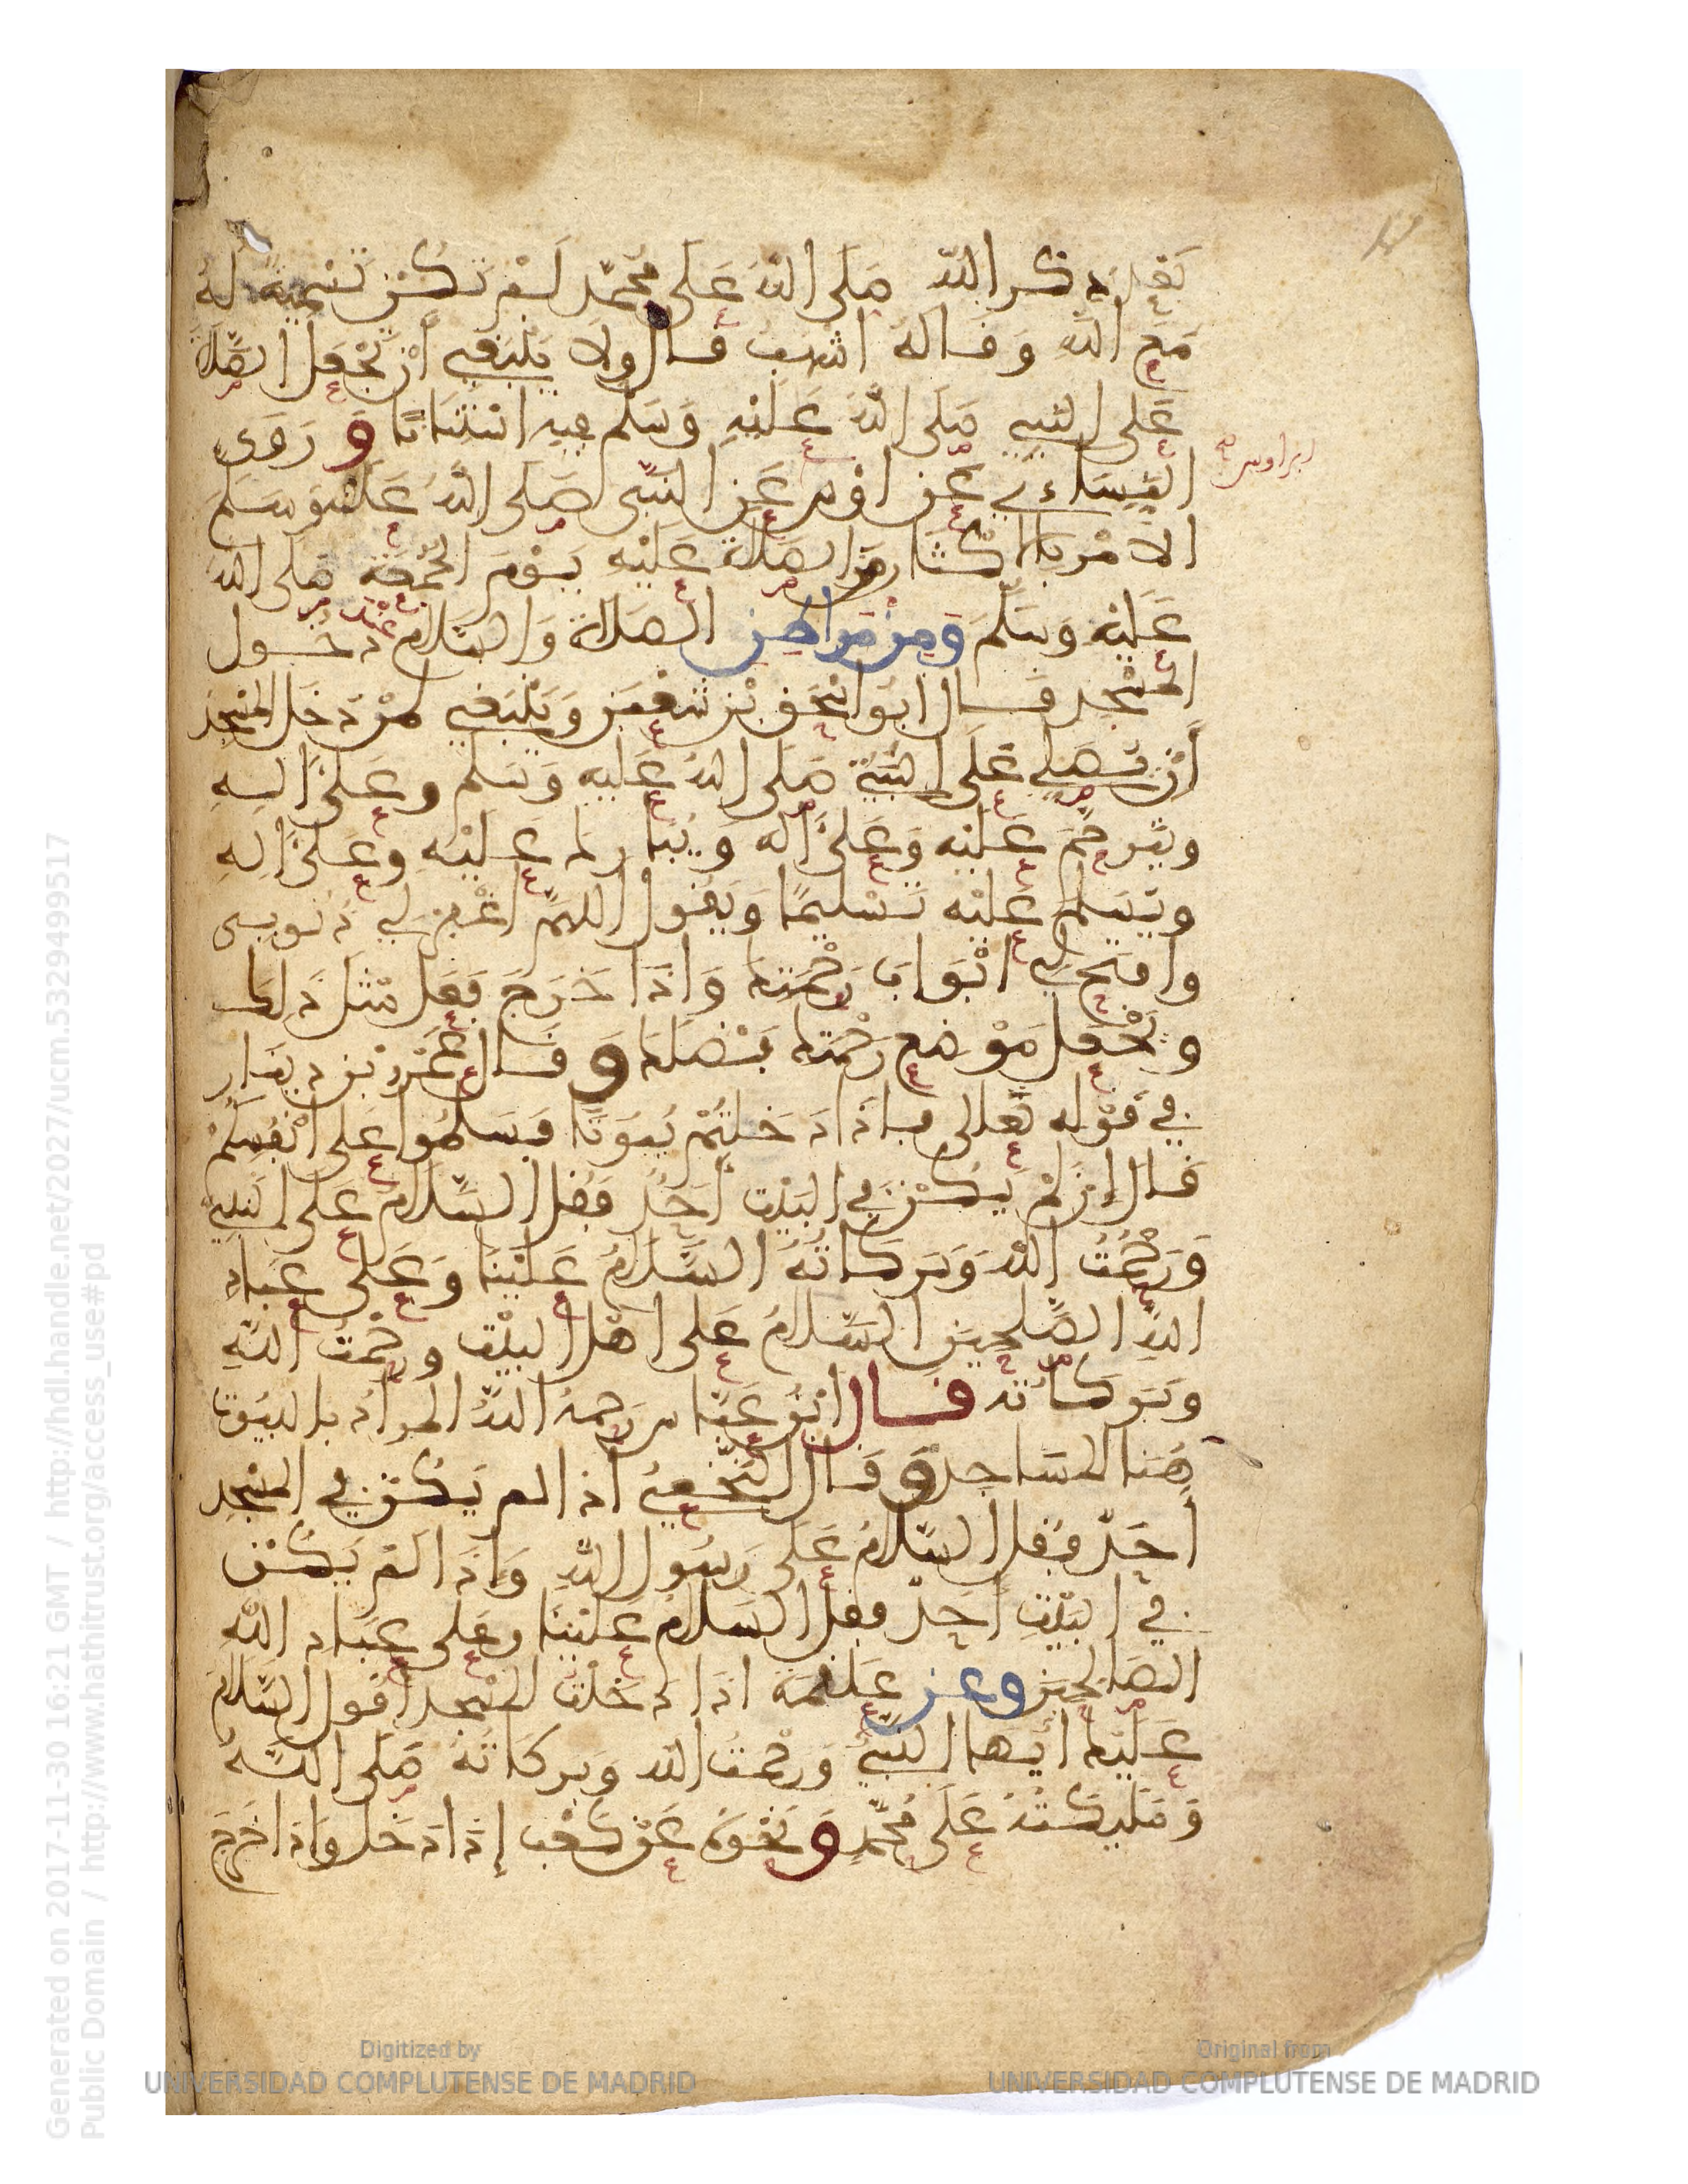 بَعْدَ ذكر الله صَلى اللهُ عَلى مُحَمّد لَمْ تَكُنْ تَسْمِيَةً لَهُ
مَعَ اللهِ وَقَالَهُ اشهب قال ولا يَنْبَغِي أنْ تُجْعَلَ الصّلاة
عَلى النبي صَلى اللهُ عَلَيْهِ وَسَلّم فيه اسْتِنَانًا وَ رَوَى
النّسَاءي عَن اوْس عَنِ النبِّى صَلى اللهُ عَلَيْه وَسَلمَ
الامْر بالاكْثار مِنَ الصَلاة عَلَيْهِ يَوْمَ الجُمعَة صَلى اللهُ
عَلَيْهِ وَسَلّمَ وَمِنْ مَوَاطِنِ الصلاة وَالسّلام عنْد دخول
المَسْجِد قال ابُو اسْحَق بْن شَعْبَن وَيَنْبَغِي لمنْ دَخَل المَسْجِدَ
أنْ يُصَلي عَلَى النّبيّ صَلى اللهُ عَلَيه وَسَلّم وعَلَىٰ ءالهِ
ويَترحّمَ عَلَيْهِ وَعَلىٰ ءاله وَيُبَارك عَلَيْهِ وعَلىٰ ءالهِ
ويُسَلم عَلَيْه تَسْليمًا وَيَقُول اللهمّ اغْفِرْ لِي ذنوبى
وافتَح لِي ابْوَابَ رَحْمَتِكَ وَاذَا خَرَجَ فَعَل مثْلَ ذَلِكَ
وجَعَل مَوْضع رَحْمَتِك بَفَضْلِكَ وَ قَال عَمْرو بْن دِينَار
في قوْله تعَالى فإذَا دَخَلتُمْ بُيُوتًا فَسَلمُوا عَلى انْفُسِكُمْ
قَال إنْ لَمْ يَكُنْ في البَيْت أحَدٌ فَقُل السَّلامُ عَلى النَّبِيِّ
وَرَحْمَتُ اللهِ وَبَركاتُهُ السَّلامُ عَلَيْنَا وَعَلَى عِبَاد
اللهِ الصّٰلِحِين السَّلامُ عَلى اهْل البَيْت ورَحْمتُ اللهِ
وَبَرَكاتُه قَال ابْنُ عَبَّاس رَحمهُ اللهُ المراد بالبُيُوت
هُنا المسَاجد وَ قَال النّخَعيُّ اذا لم يَكُن في المسْجدِ
أحَدٌ فقُل السّلامُ عَلَى رَسُول اللهِ وَاذَا لَمْ يَكُنْ
في البَيْتِ أحَدٌ فقُل السَلامُ عَلَيْنَا وعَلى عِبَاد اللهِ
الصَالِحِينَ وعن عَلقَمَة اذا دَخَلْتُ المَسْجد أقول السَّلام
عَلَيْكَ ايُّهَا النّبيُّ وَرَحْمتُ الله وَبَركاتُهُ صَلى اللهُ
وَمَلَيِكَتُهُ عَلَى مُحَمَّدٍ وَ نَحْوُهُ عَنْ كَعْب إذا دَخَل وَاذا خَرَجَ